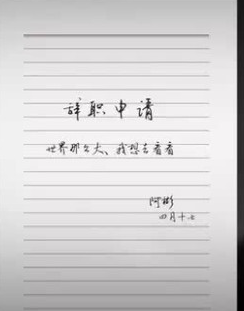 辞职申请
世界那么大、我想去看看
阿彬
四月十七